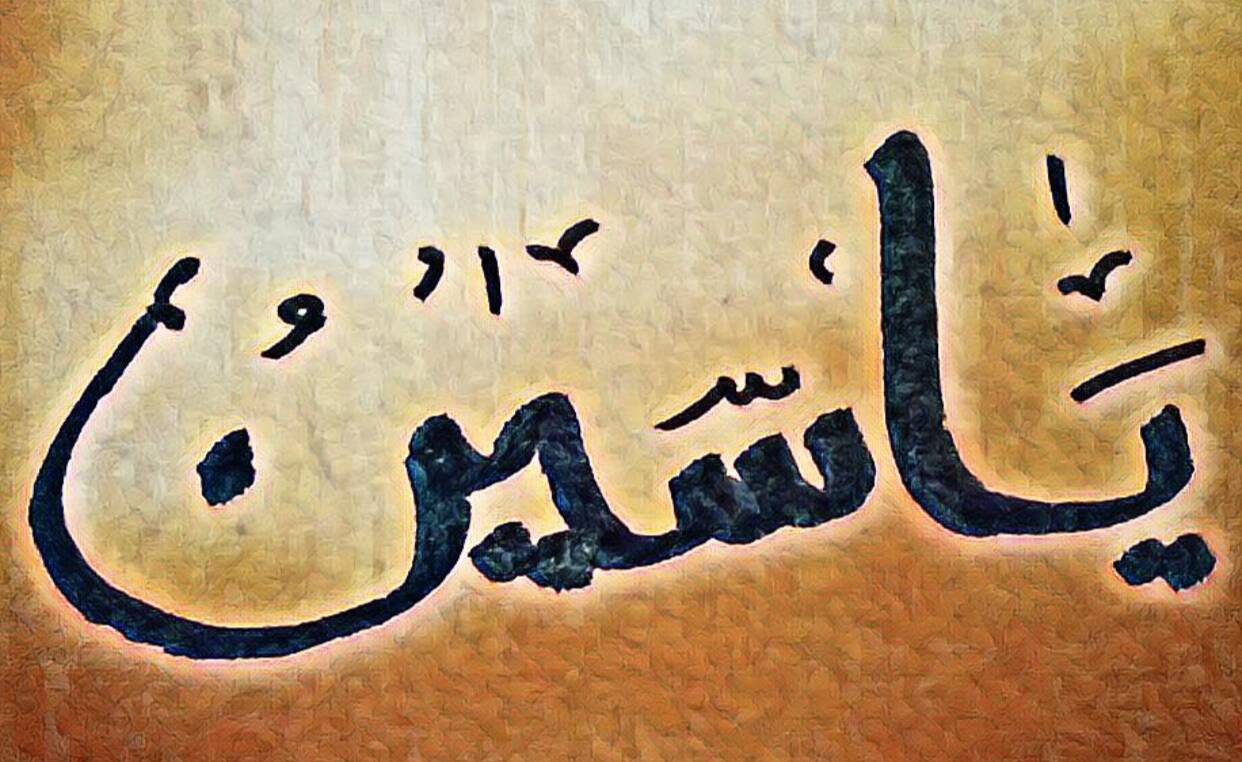 يَاسَيِنُ